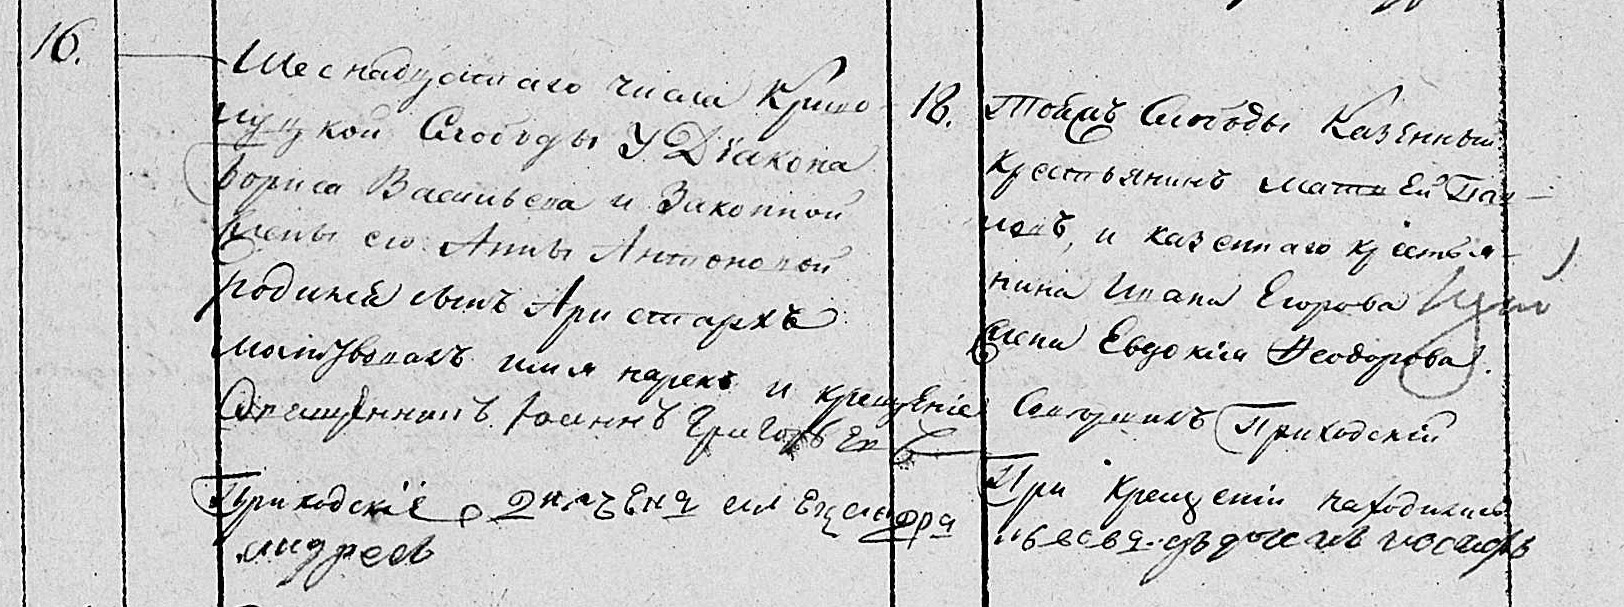 16.
Шеснадцатаго числа Криво
луцкой Слободы У Діакона
Бориса Васильева и Законной
жены его Анны Антоновой
родился сынъ Аристархъ
молитвовалъ имя нарекъ и крещеніе
Священникъ Іоаннъ Григорьевъ
Приходскіе
Андрей
18.
Тойжъ Слободы Казенный
крестьянинъ Матвей Пав-
ловъ, и казеннаго крестья-
нина Ивана Егорова
жена Евдокія Ѳеодорова.
Совершилъ Приходскій
При Крещеніи находились